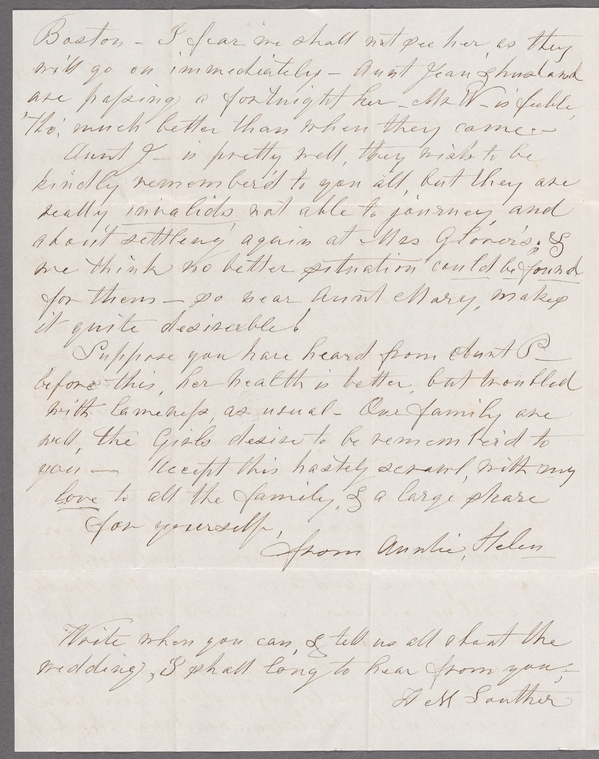 Boston - I fear we shall not see her, as they
will go on immediately - Aunt Jean & husband
are passing a fortnight her - Mr W - is feeble,
'tho' much better than when they came -
Aunt J - is pretty well, they wish to be
kindly remember'd to you all, but they are
really invalids not able to journey, and
about settling again at Mrs Glover's, &
we think no better situation could be found
for them - so near Aunt Mary, makes
it quite desireable!
Suppose you have heard from Aunt P -
before this, her health is better, but troubled
with lameness, as usual - Our family are
well, the Girls desire to be remember'd to
you - Accept this hastely scrawl, with my
love to all the family, & a large share
for yourself,
from Auntie, Helen
Write when you can, & tell us all about the
wedding, I shall long to hear from you,
H M Souther